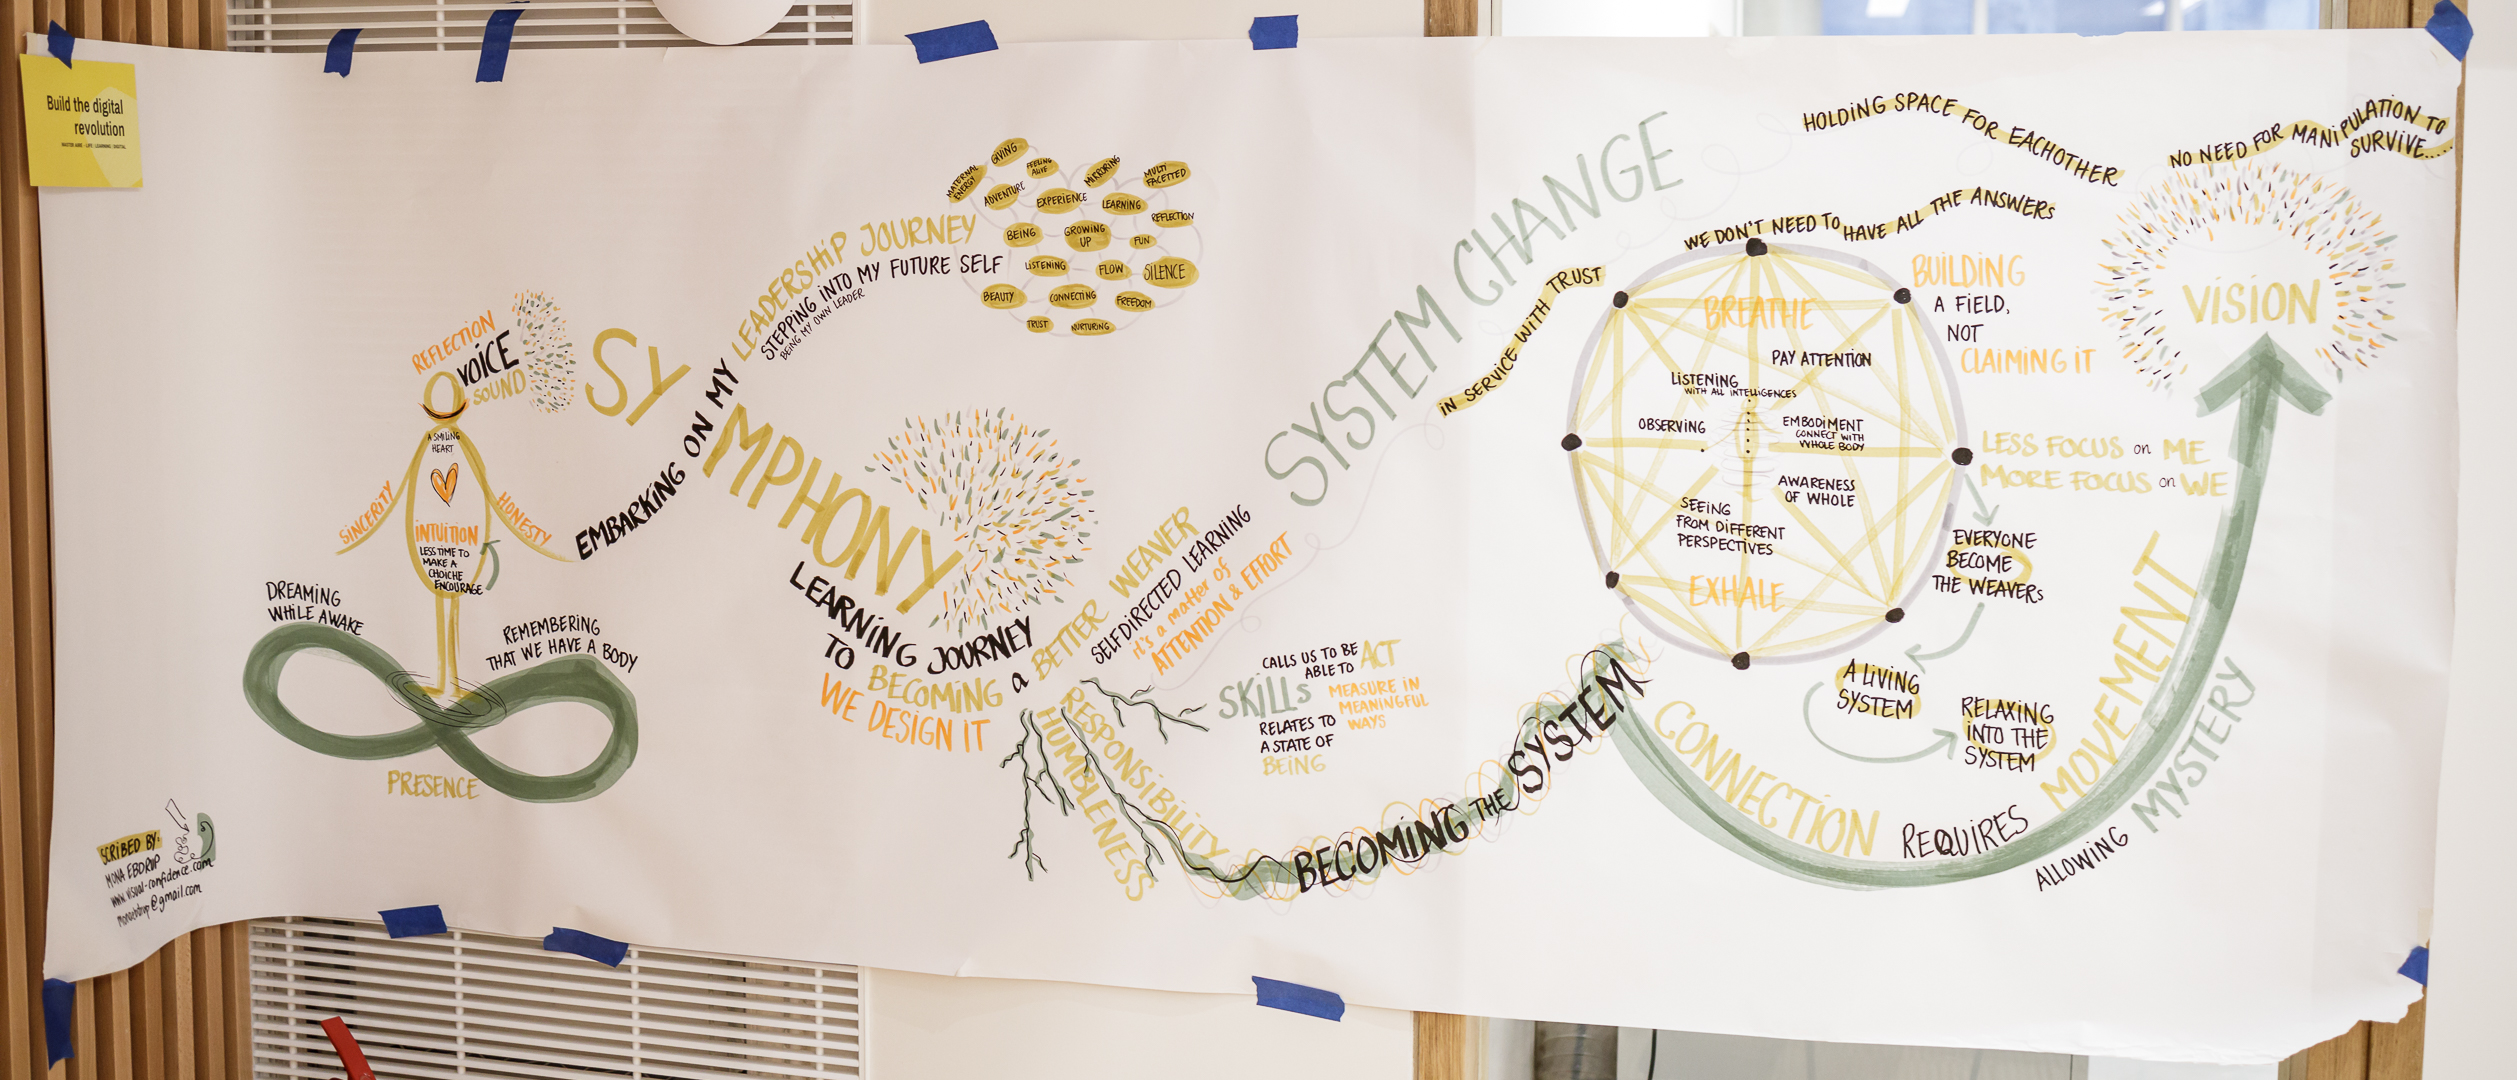 Build the digital
revolution
REFLECTION
VOICE
SOUND
A SMILING
HEART
SINCERITY
HONESTY
INTUITION
LESS TIME TO
MAKE A
CHOICHE
ENCOURAGE
DREAMING
WHILE AWAKE
REMEMBERING
THAT WE HAVE A BODY
PRESENCE
SCRIBED BY:
MONA EBDRUP
www.visual-confidence.com
monaebdrup@gmail.com
SYMPHONY
EMBARKING ON MY LEADERSHIP JOURNEY
STEPPING INTO MY FUTURE SELF
BEING MY OWN LEADER
MATERNAL
ENERGY
GIVING
FEELING
ALIVE
MIRRORING
MULTI
FACETTED
ADVENTURE
EXPERIENCE
LEARNING
REFLECTION
BEING
GROWING
UP
FUN
LISTENING
FLOW
SILENCE
BEAUTY
CONNECTING
FREEDOM
TRUST
NURTURING
LEARNING JOURNEY
TO BECOMING a BETTER WEAVER
WE DESIGN IT
SELFDIRECTED LEARNING
it's a matter of
ATTENTION & EFFORT
RESPONSIBILITY
HUMBLENESS
CALLS US TO BE
ABLE TO ACT
SKILLs
MEASURE IN
MEANINGFUL
WAYS
RELATES TO
A STATE OF
BEING
BECOMING THE SYSTEM
SYSTEM CHANGE
IN SERVICE WITH TRUST
WE DON'T NEED TO HAVE ALL THE ANSWERS
HOLDING SPACE FOR EACHOTHER
NO NEED FOR MANIPULATION TO
SURVIVE....
BREATHE
PAY ATTENTION
LISTENING
WITH ALL INTELLIGENCES
OBSERVING
EMBODIMENT
CONNECT WITH
WHOLE BODY
AWARENESS
OF WHOLE
SEEING
FROM DIFFERENT
PERSPECTIVES
EXHALE
BUILDING
A FIELD,
NOT
CLAIMING IT
LESS FOCUS on ME
MORE FOCUS on WE
EVERYONE
BECOME
THE WEAVERs
A LIVING
SYSTEM
RELAXING
INTO THE
SYSTEM
CONNECTION REQUIRES MOVEMENT
ALLOWING MYSTERY
VISION